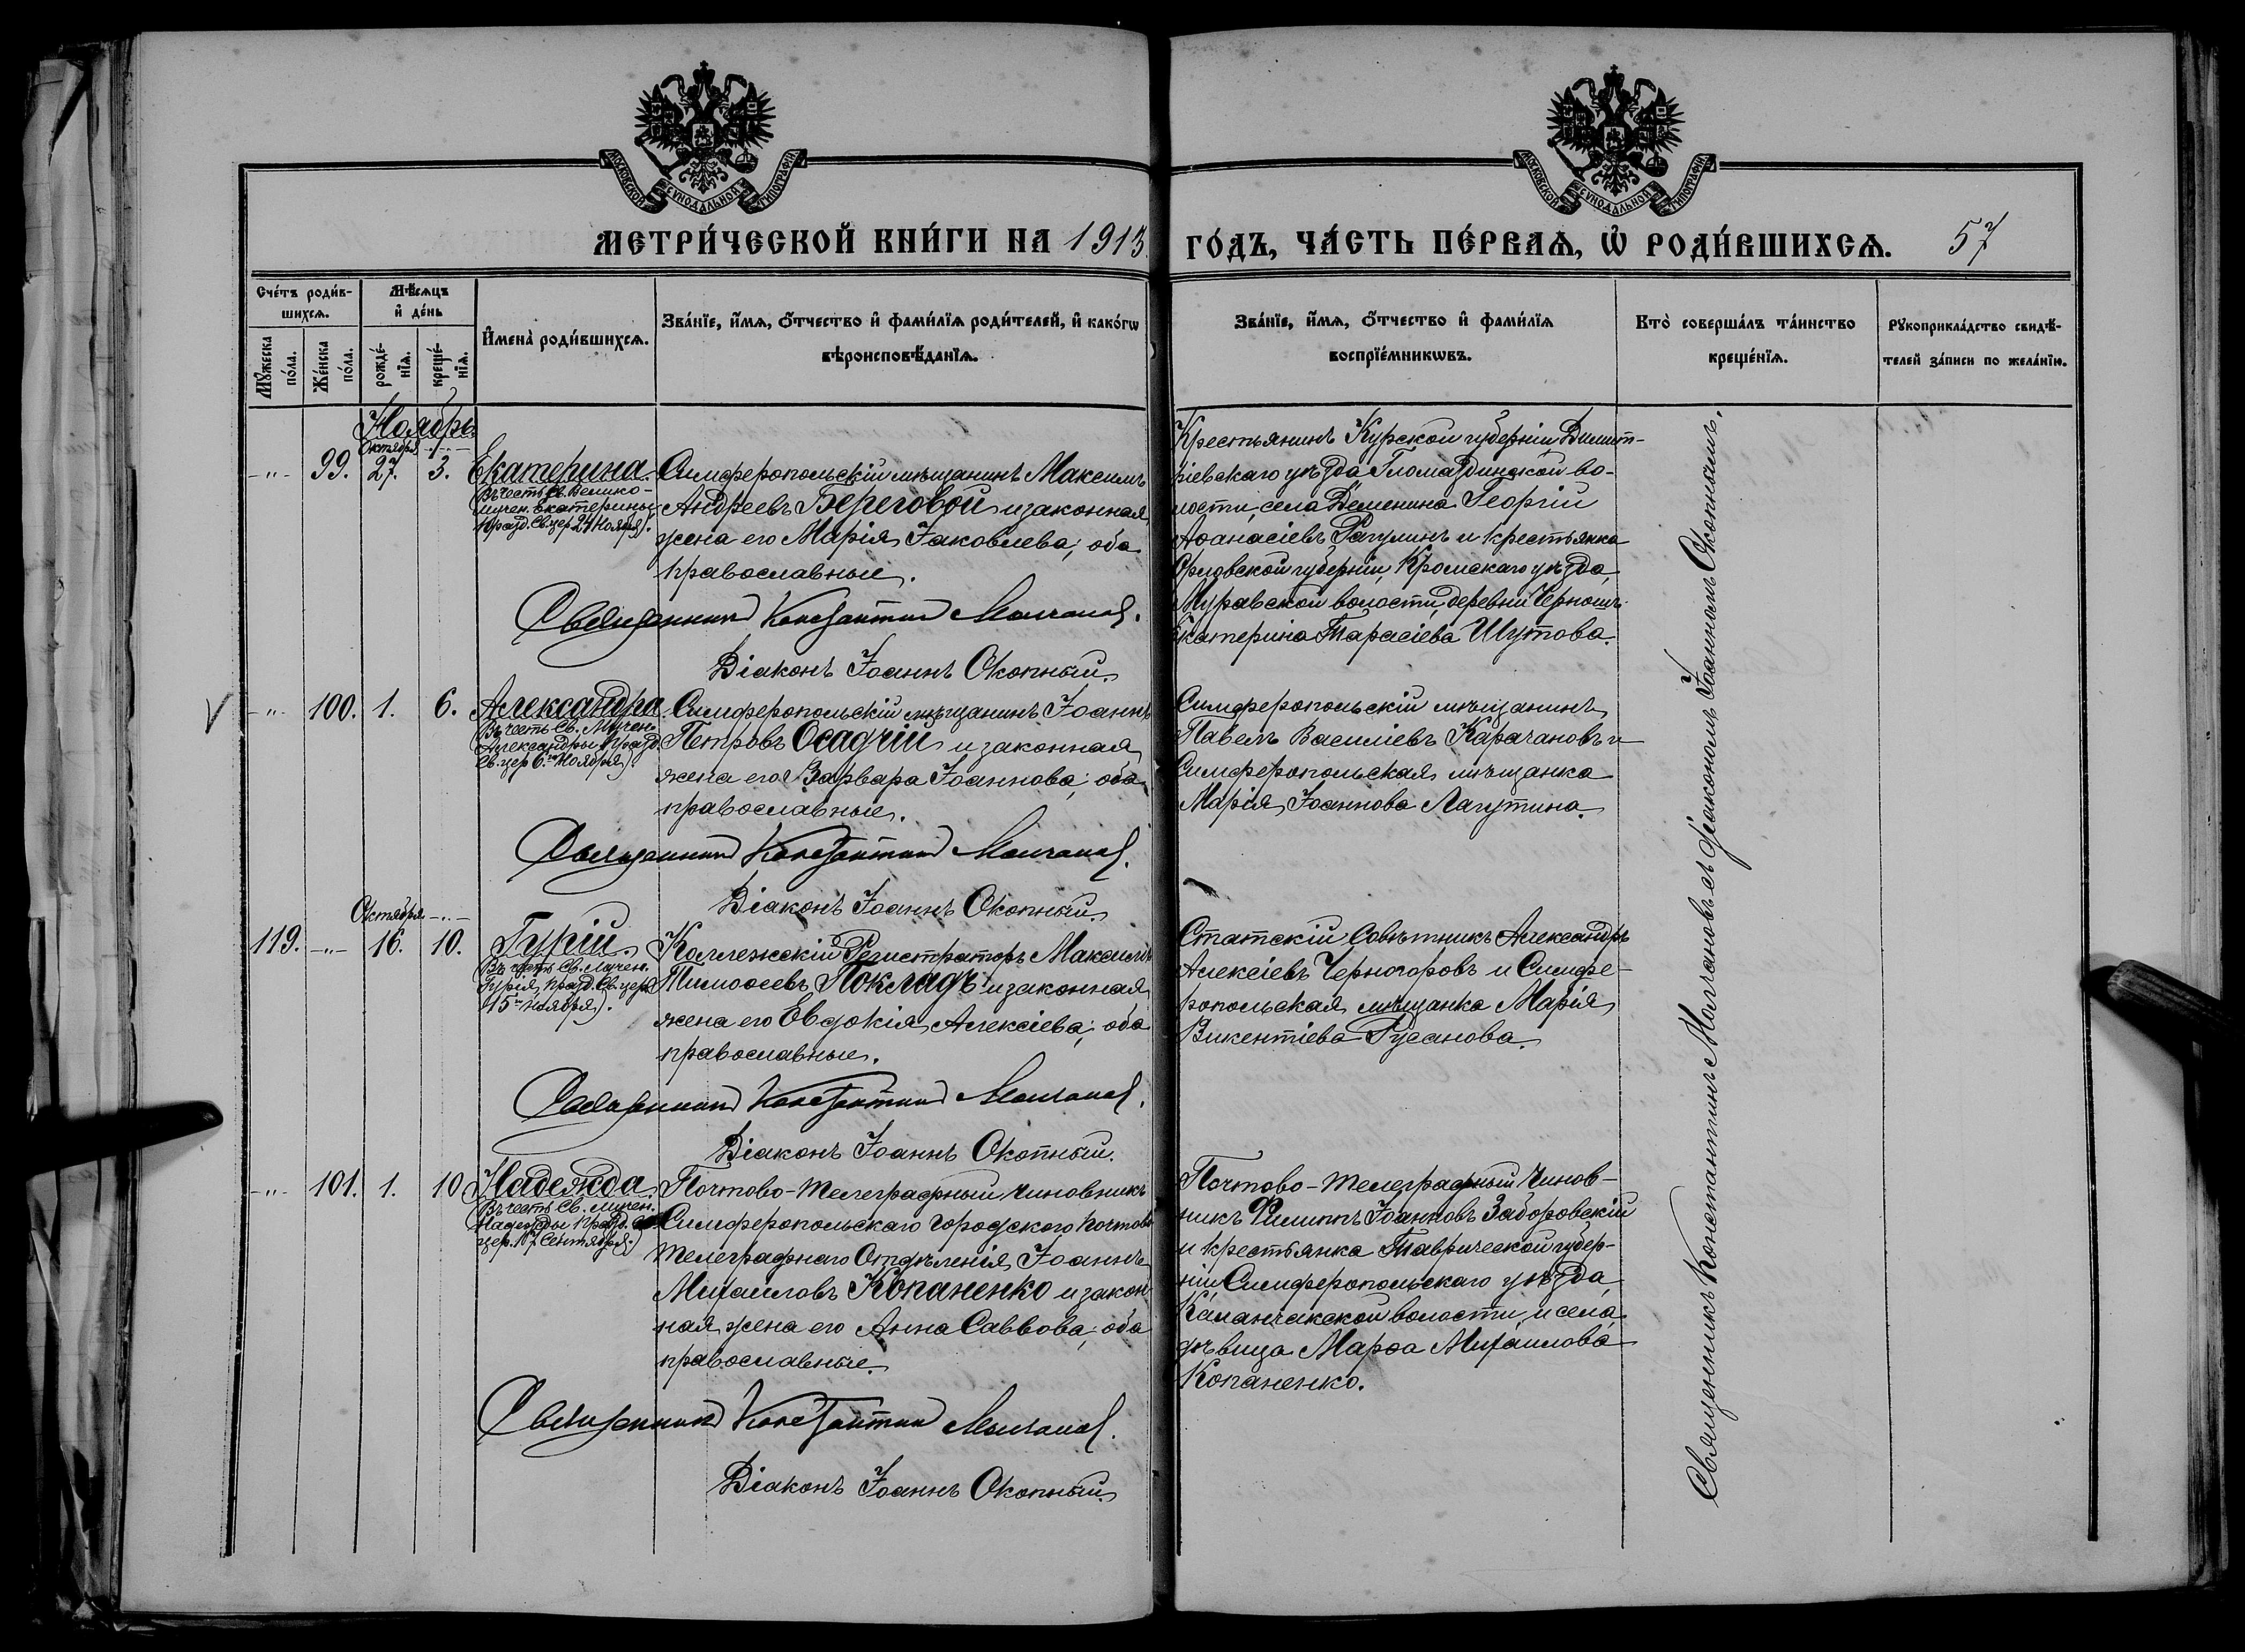 МОСКОВСКОЙ СѴНОДАЛЬНОЙ ТИПОГРАФІИ
МОСКОВСКОЙ СѴНОДАЛЬНОЙ ТИПОГРАФІИ
МЕТРИ́ЧЕСКОЙ КНИ́ГИ НА 1913
ГО́ДЪ, ЧА́СТЬ ПЕ́РВАѦ, Ѡ҆ РОДИ́ВШИХСѦ. 57
Сче́тъ роди́в-
шихсѧ.
Мꙋ́жеска
по́ла.
Же́нска
по́ла.
Мѣ́сѧцъ
и҆ де́нь
рожде́-
нїѧ.
креще́-
нїѧ.
И҆мена̀ роди́вшихсѧ.
Зва́нїе, и҆́мѧ, ѻ҆́тчество и҆ фами́лїѧ роди́телей, и҆ како́гѡ
вѣроисповѣ́данїѧ.
Зва́нїе, и҆́мѧ, ѻ҆́тчество и҆ фами́лїѧ
воспрїе́мникѡвъ.
Кто̀ соверша́лъ та́инство
креще́нїѧ.
Рꙋкоприкла́дство свидѣ́-
телей за́писи по жела́нїю.
Ноябрь.
Октября -"-
-"- 99. 27. 3.
Екатерина.
Въ честь Св. Велико-
мучен. Екатерины
(празд. Св. цер. 24 Ноября).
Симферопольскій мѣщанинъ Максимъ
Андреевъ Береговой и законная
жена его Марія Іаковлева; оба
православные.
Священникъ Константинъ Молчановъ.
Діаконъ Іоаннъ Окопный.
Крестьянинъ Курской губерніи Димит-
ріевскаго уѣзда, Гламаздинской во-
лости, села Деменина Георгій
Аѳанасіевъ Рагулинъ и крестьянка
Орловской губерніи, Кромскаго уѣзда,
Муравской волости, деревни
Екатерина Тарасіева Шутова.
-"- 100. 1. 6.
Александра.
Въ честь Св. Мучен.
Александры (празд.
Св. цер. 6го Ноября).
Симферопольскій мѣщанинъ Іоаннъ
Петровъ Осадчій и законная
жена его Варвара Іоаннова; оба
православные.
Священникъ Константинъ Молчановъ.
Діаконъ Іоаннъ Окопный.
Симферопольскій мѣщанинъ
Павелъ Василіевъ Карачановъ и
Симферопольская мѣщанка
Марія Іоаннова Лагутина.
Октября -"-
119. -"- 16. 10.
Гурій.
Въ честь Св. Мучен.
Гурія (празд. Св. цер.
15го Ноября).
Коллежскій Регистраторъ Максимъ
Тимоѳеевъ Покладъ и законная
жена его Евдокія Алексіева; оба
православные.
Священникъ Константинъ Молчановъ.
Діаконъ Іоаннъ Окопный.
Статскій Совѣтникъ Александръ
Алексіевъ Черногоровъ и Симфе-
ропольская мѣщанка Марія
Викентіева Русанова.
-"- 101. 1. 10.
Надежда.
Въ честь Св. мучен.
Надежды (празд. Св.
цер. 17 Сентября.)
Почтово-Телеграфный чиновникъ
Симферопольскаго Городского Почтово
Телеграфнаго Отдѣленія, Іоаннъ
Михаиловъ Копаненко и закон
ная жена его Анна Саввова; оба
православные.
Священникъ Константинъ Молчановъ.
Діаконъ Іоаннъ Окопный.
Почтово-Телеграфный Чинов-
никъ Филиппъ Іоанновъ Заборовскій
и крестьянка Таврической губер-
ніи Симферопольскаго уѣзда,
Каланчакской волости и села
дѣвица Марѳа Михаилова
Копаненко.
Священникъ Константинъ Молчановъ съ діакономъ Іоанномъ Окопнымъ.